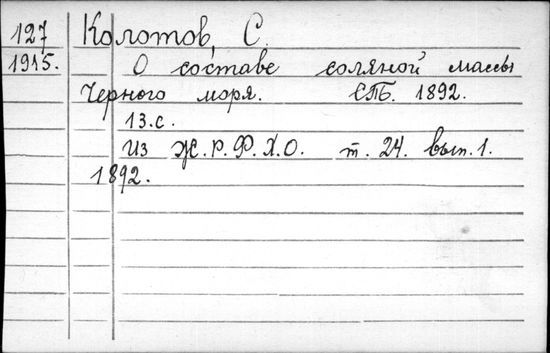 127 Колотов, С.
1915. О составе соляной массы
Черного моря. СПб. 1892.
13.с.
Из Ж.Р.Ф.Х.О. т. 24. вып. 1.
1892.